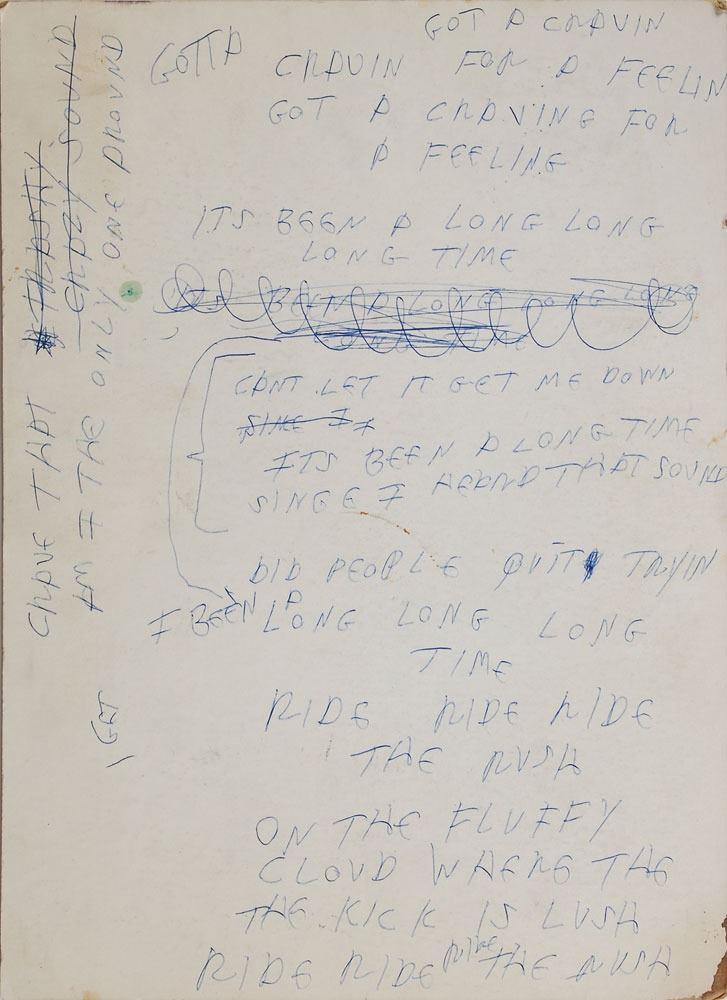 GOT A CRAVIN
GOTTA CRAVIN FOR A FEELIN
GOT A CRAVING FOR
A FEELING
ITS BEEN A LONG LONG
LONG TIME
ITS BEEN A LONG LONG LONG
LONG TIME
CANT LET IT GET ME DOWN
SINCE I
ITS BEEN A LONG TIME
SINCE I HEARD THAT SOUND
DID PEOPLE QUIT TRYIN
I BEEN A LONG LONG LONG
TIME
RIDE RIDE RIDE
THE RUSH
ON THE FLUFFY
CLOUD WHERE THE
THE KICK IS LUSH
RIDE RIDE RIDE THE RUSH
CRAVE THAT TRASHY
CRAZY SOUND
AM I THE ONLY ONE AROUND
GET